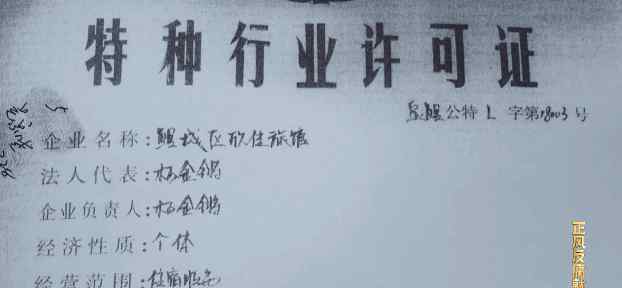 特种行业许可证
泉鲤公特L字第18003号
企业名称:鲤城区欣佳旅馆
法人代表:
企业负责人:
经济性质:个体
经营范围:住宿服务
正风反腐就